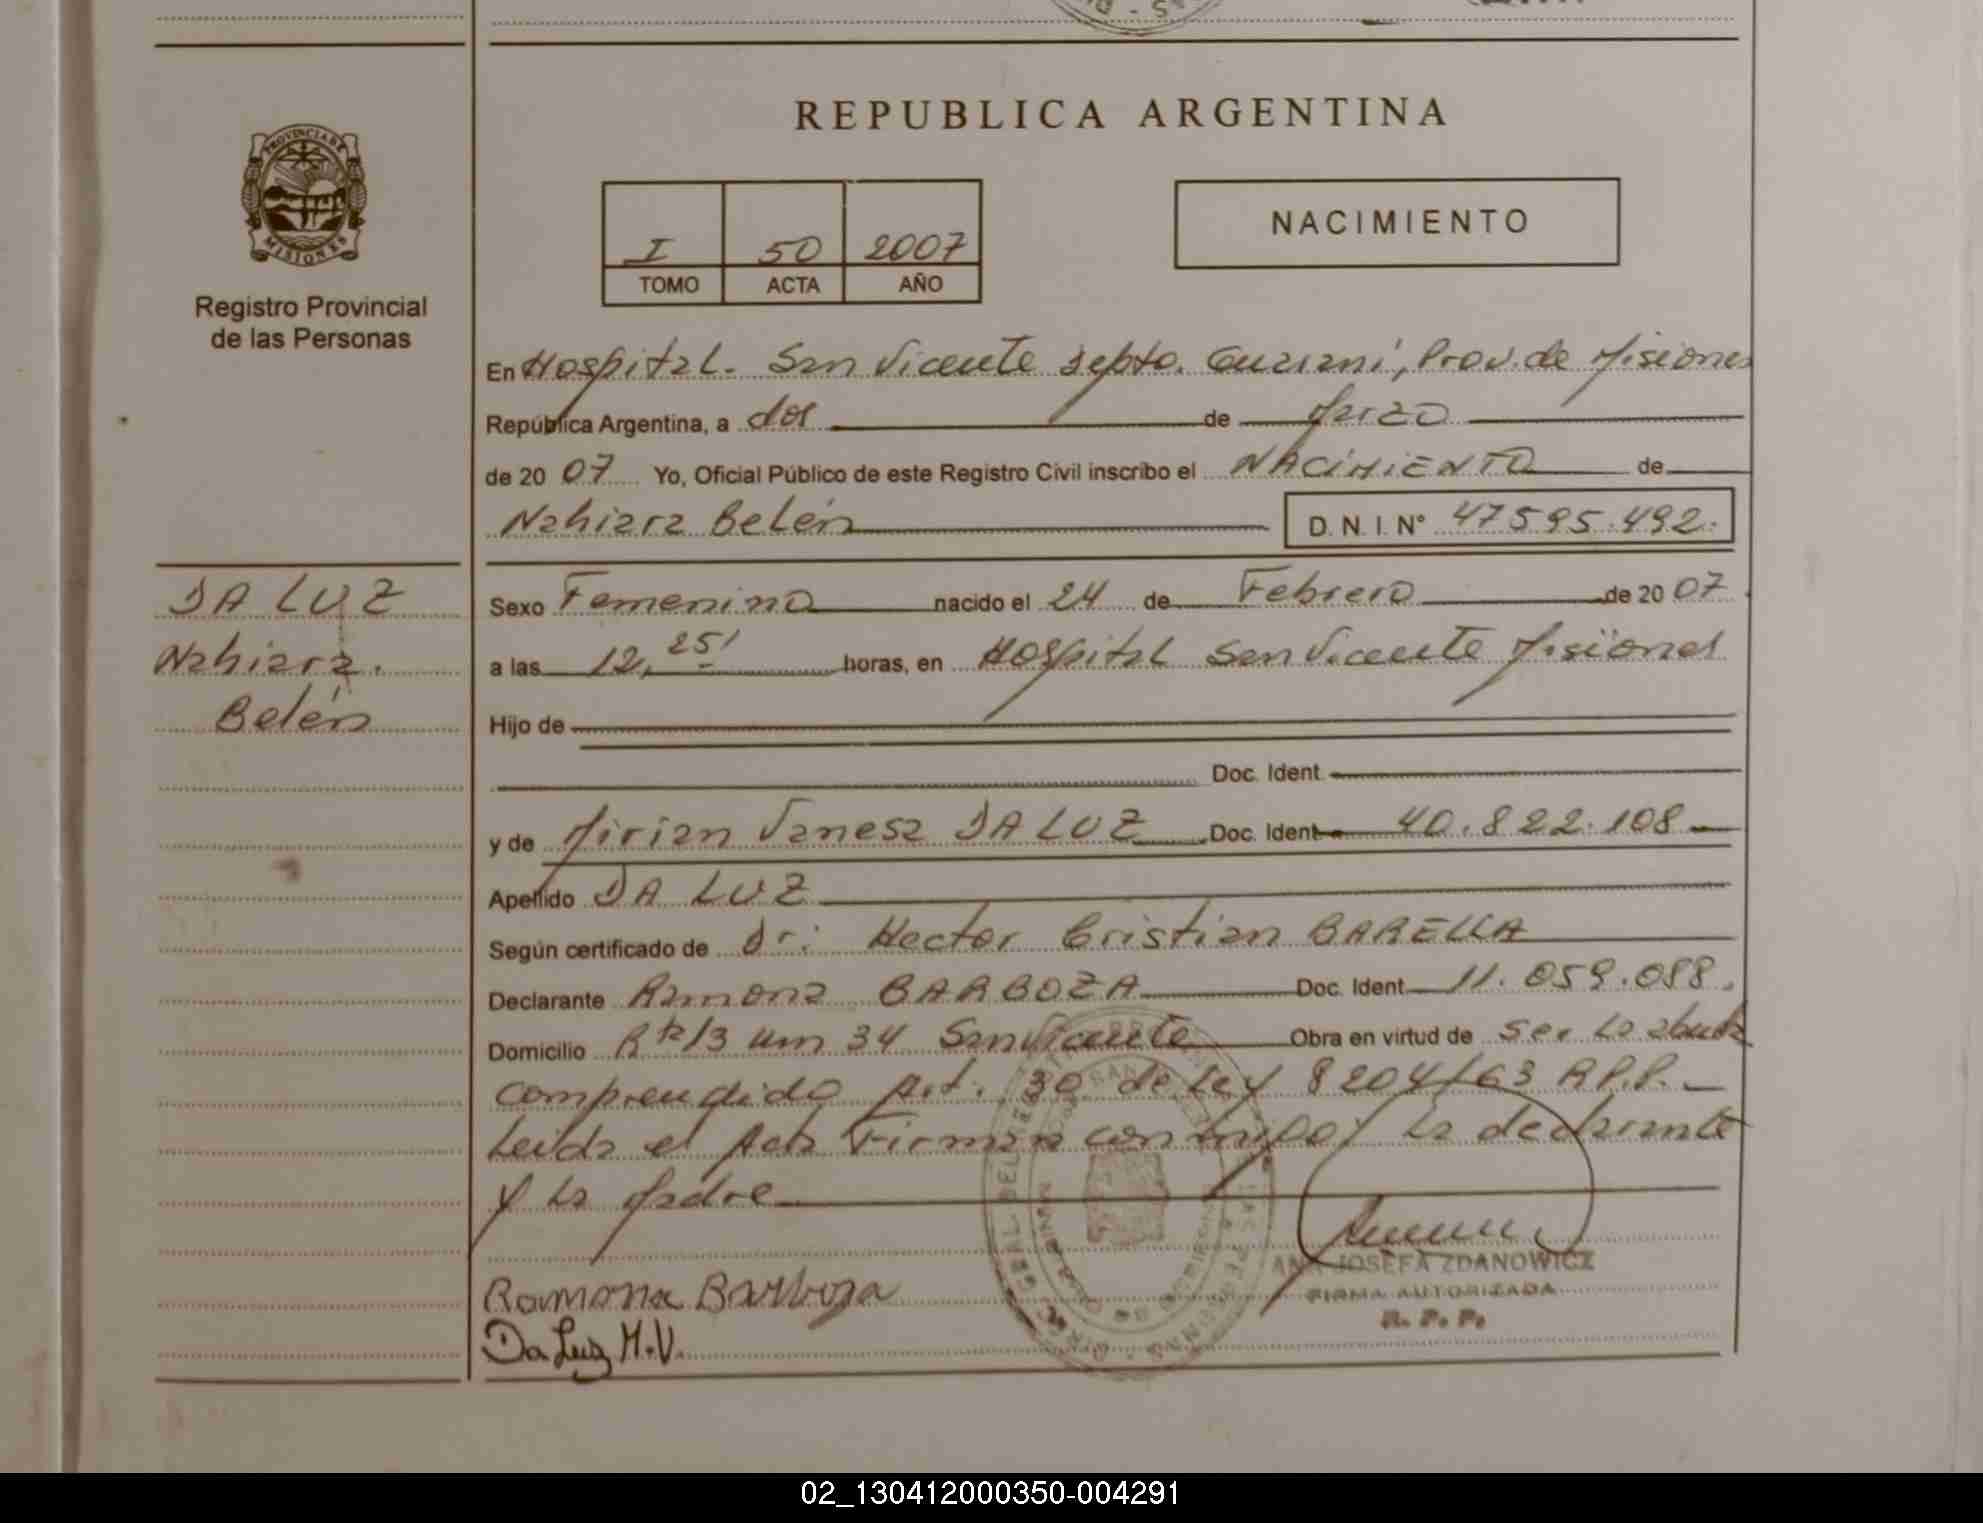 REPUBLICA ARGENTINA
PROVINCIA DE
MISIONES
Registro Provincial
de las Personas
I 50 2007
TOMO ACTA AÑO
NACIMIENTO
En Hospital. San Vicente Depto. Guaraní, Prov. de Misiones
República Argentina, a dos de Marzo
de 20 07 Yo, Oficial Público de este Registro Civil inscribo el NACIMIENTO de
Nahiara Belén D. N. I. N° 47595.492.
DA LUZ
Nahiara.
Belén
Sexo Femenino nacido el 24 de Febrero de 20 07
a las 12,25' horas, en Hospital San Vicente Misiones
Hijo de
Doc. Ident.
y de Mirian Vanesa DA LUZ Doc. Ident. 40.822.108
Apellido DA LUZ
Según certificado de Dr: Hector Cristian BARELLA
Declarante Ramona BARBOZA Doc. Ident. 11.059.088.
Domicilio Rta 13 Km 34 San Vicente Obra en virtud de ser la abuela
comprendido Art. 30 de Ley 8204/63 R.P.P.
Leida el Acta Firman con migo y la declarante
y la Madre
Ramona Barboza
Da Luz M.V.
ANA JOSEFA ZDANOWICZ
FIRMA AUTORIZADA
R. P. P.
02_130412000350-004291